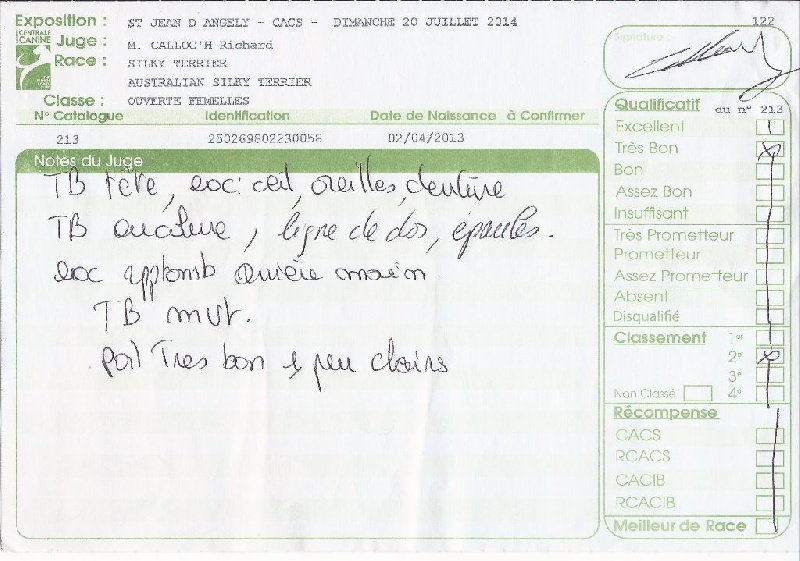 Exposition : ST JEAN D ANGELY - CACS - DIMANCHE 20 JUILLET 2014
122
CENTRALE CANINE
Juge : M. CALLOC'H Richard
Race : SILKY TERRIER
AUSTRALIAN SILKY TERRIER
Classe : OUVERTE FEMELLES
N° Catalogue Identification Date de Naissance à Confirmer
213 250269802230058 02/04/2013
Notes du Juge
TB tête, exc: œil, oreilles, denture
TB encolure, ligne de dos, épaules.
exc applomb arrière
TB mvt.
poil Tres bon peu
Signature :
Qualificatif du n° 213
Excellent
Très Bon X
Bon
Assez Bon
Insuffisant
Très Prometteur
Prometteur
Assez Prometteur
Absent
Disqualifié
Classement 1er
2e X
3e
Non Classé 4e
Récompense
CACS
RCACS
CACIB
RCACIB
Meilleur de Race